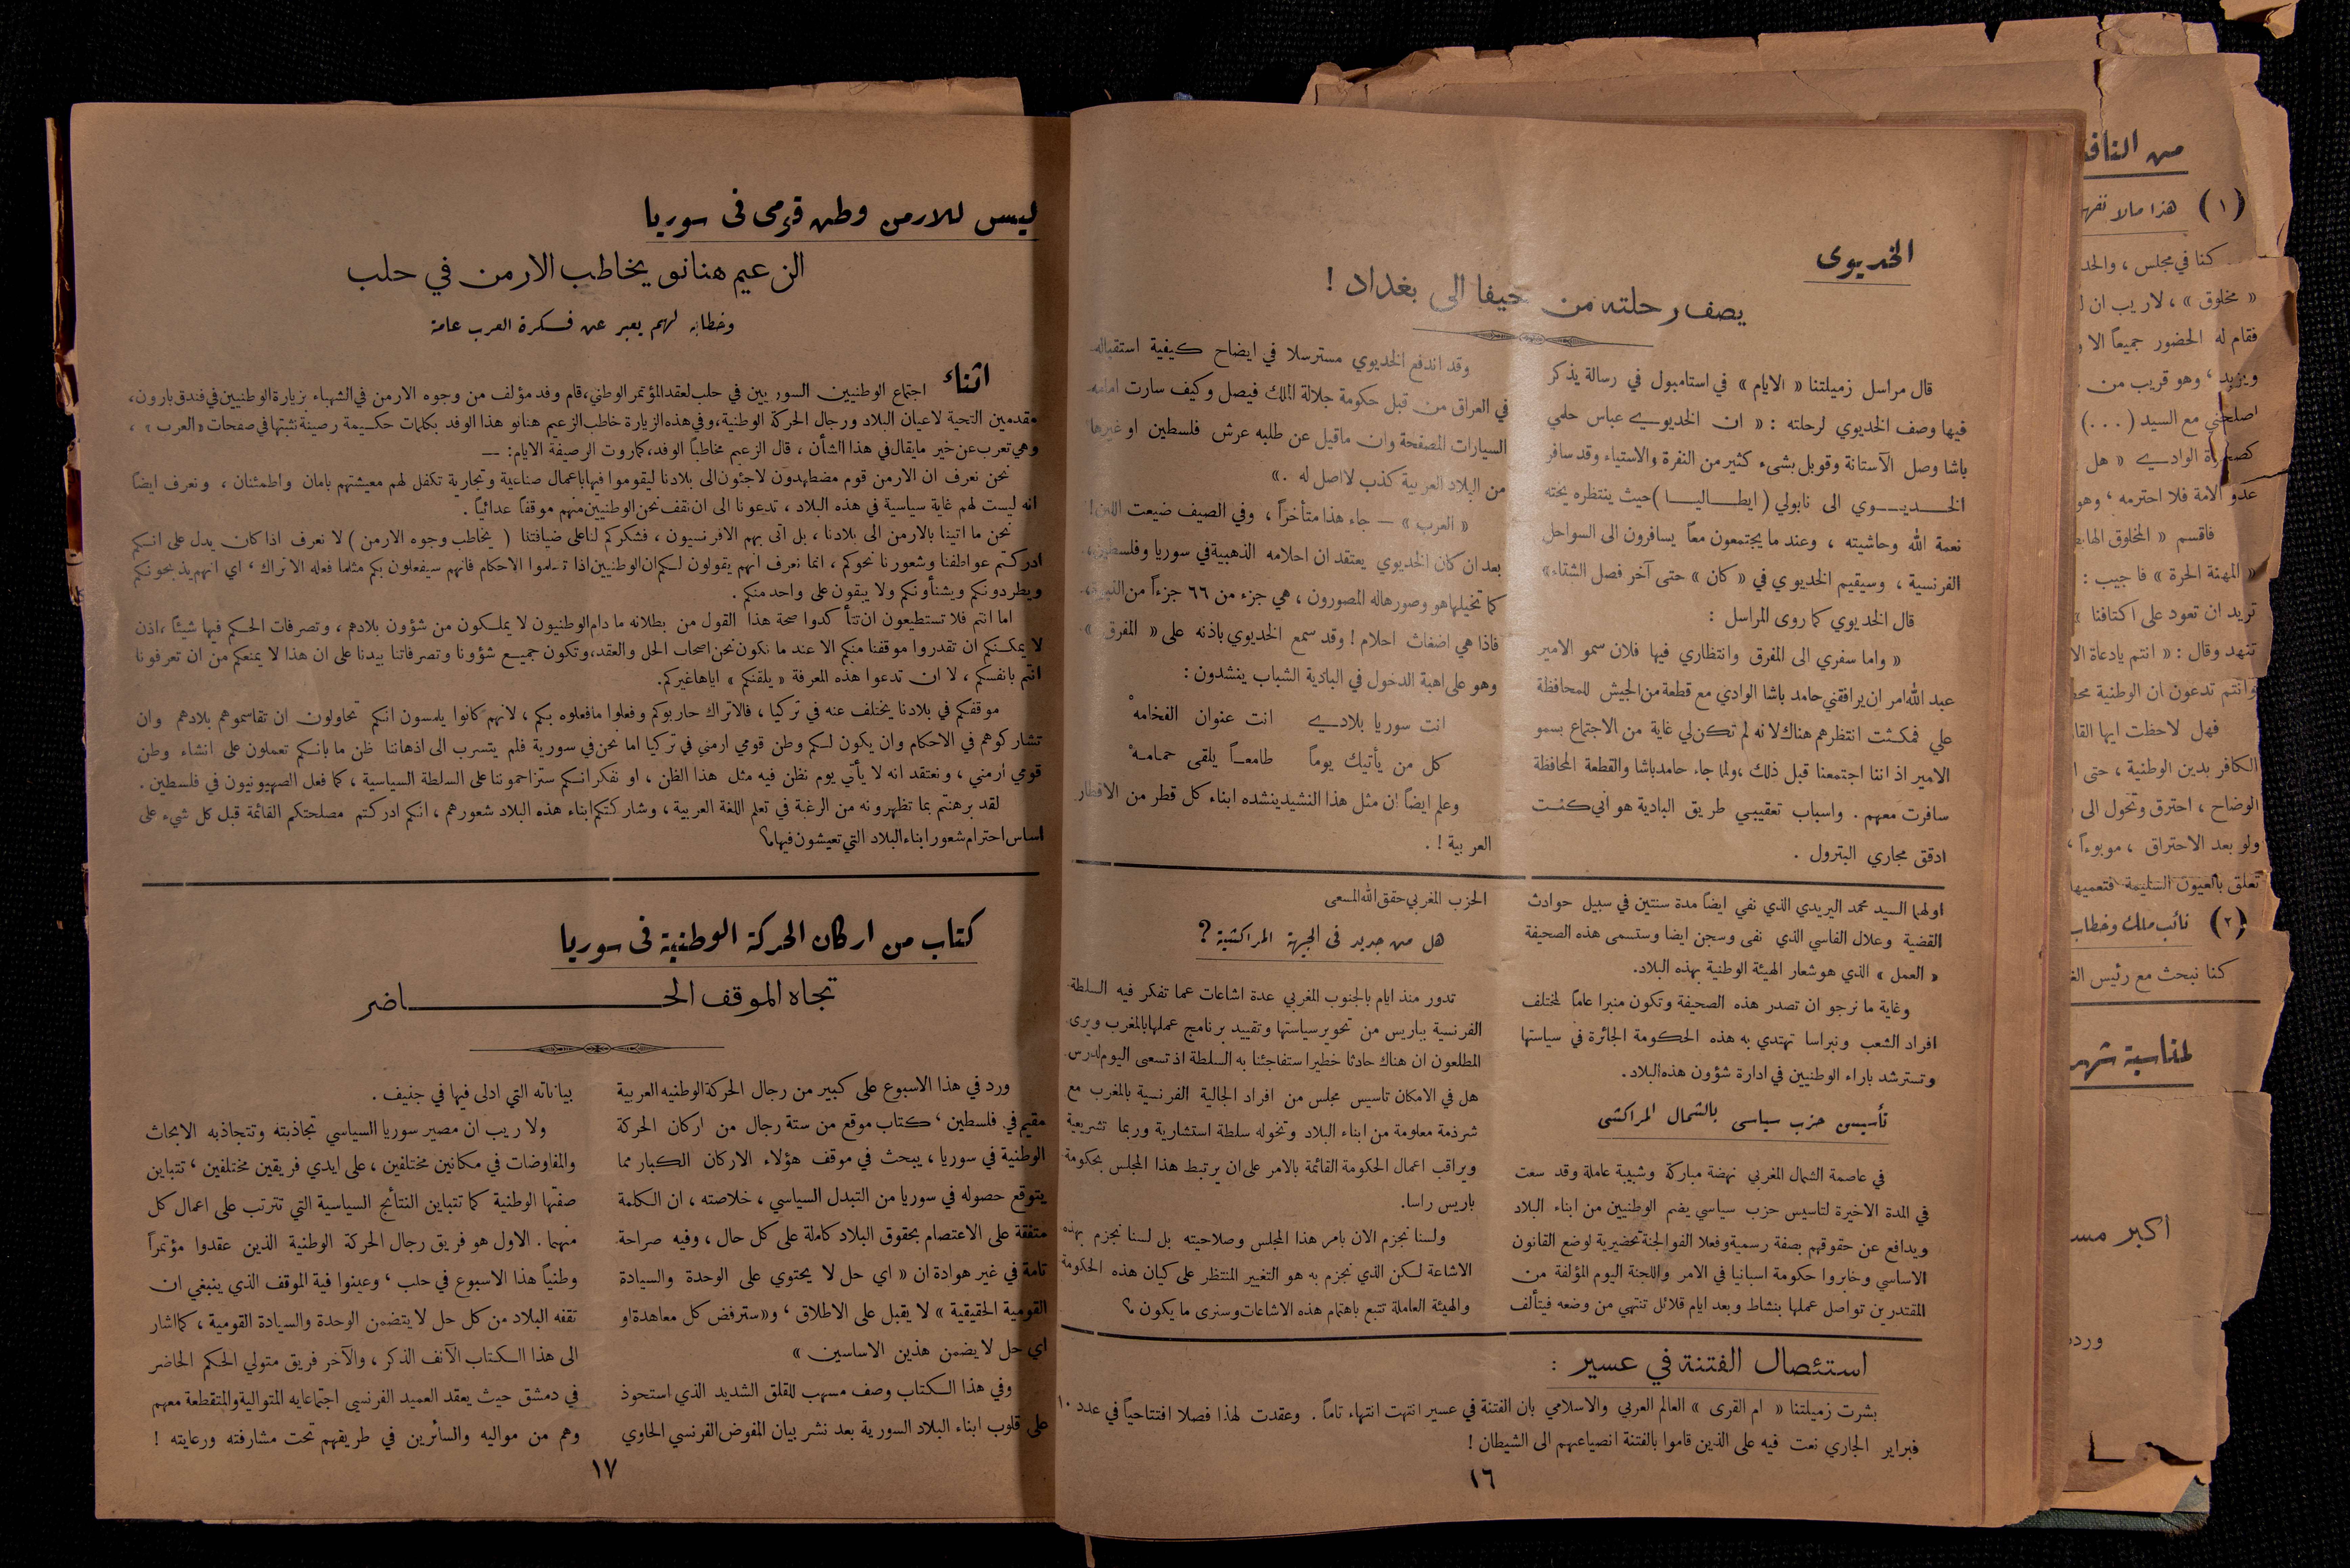 الخديوى
يصف رحلته من حيفا الى بغداد !
قال مراسل زميلتنا « الايام » في استامبول في رسالة يذكر
فيها وصف الخديوي لرحلته : « ان الخديوي عباس حلمي
باشا وصل الآستانة وقوبل بشيء كثير من النفرة والاستياء وقد سافر
الخـــديـــوي الى نابولي ( ايطـــاليـــا ) حيث ينتظره يخته
نعمة الله وحاشيته ، وعند ما يجتمعون معاً يسافرون الى السواحل
الفرنسية ، وسيقيم الخديوي في « كان » حتى آخر فصل الشتاء»
قال الخديوي كما روى المراسل :
« واما سفري الى المفرق وانتظاري فيها فلان سمو الامير
عبد الله امر ان يرافقني حامد باشا الوادي مع قطعة من الجيش للمحافظة
علي فمكثت انتظرهم هناك لانه لم تكن لي غاية من الاجتماع بسمو
الامير اذ اننا اجتمعنا قبل ذلك ، ولما جاء حامد باشا والقطعة المحافظة
سافرت معهم . واسباب تعقيبي طريق البادية هو اني كنت
ادقق مجاري البترول .
وقد اندفع الخديوي مسترسلا في ايضاح كيفية استقباله
في العراق من قبل حكومة جلالة الملك فيصل وكيف سارت امامه
السيارات المصفحة وان ماقيل عن طلبه عرش فلسطين او غيرها
من البلاد العربية كذب لا اصل له .»
« العرب » — جاء هذا متأخراً ، وفي الصيف ضيعت اللبن !
بعد ان كان الخديوي يعتقد ان احلامه الذهبية في سوريا وفلسطين،
كما تخيلها هو وصورها له المصورون ، هي جزء من ٦٦ جزءاً من النبوة،
فاذا هي اضغاث احلام ! وقد سمع الخديوي باذنه على « المفرق »
وهو على اهبة الدخول في البادية الشباب ينشدون :
انت سوريا بلادي انت عنوان الفخامهْ
كل من يأتيك يوماً طامعـاً يلقى حمامـهْ
وعلم ايضاً ان مثل هذا النشيد ينشده ابناء كل قطر من الاقطار
العربية ! .
اولهما السيد محمد اليريدي الذي نفي ايضاً مدة سنتين في سبيل حوادث
القضية وعلال الفاسي الذي نفى وسجن ايضا وستسمى هذه الصحيفة
« العمل » الذي هو شعار الهيئة الوطنية بهذه البلاد.
وغاية ما نرجو ان تصدر هذه الصحيفة وتكون منبرا عاماً لمختلف
افراد الشعب ونبراسا تهتدي به هذه الحكومة الجائرة في سياستها
وتسترشد باراء الوطنيين في ادارة شؤون هذه البلاد.
تأسيس حزب سياسى بالشمال المراكشى
في عاصمة الشمال المغربي نهضة مباركة وشبيبة عاملة وقد سعت
في المدة الاخيرة لتاسيس حزب سياسي يضم الوطنيين من ابناء البلاد
ويدافع عن حقوقهم بصفة رسمية وفعلا الفوا لجنة تحضيرية لوضع القانون
الاساسي وخابروا حكومة اسبانيا في الامر واللجنة اليوم المؤلفة من
المقتدرين تواصل عملها بنشاط وبعد ايام قلائل تنتهي من وضعه فيتألف
الحزب المغربي حقق الله المسعى
هل من جديد فى الجهة المراكشية ؟
تدور منذ ايام بالجنوب المغربي عدة اشاعات عما تفكر فيه السلطة
الفرنسية بباريس من تحوير سياستها وتقييد برنامج عملها بالمغرب ويرى
المطلعون ان هناك حادثا خطيرا ستفاجئنا به السلطة اذ تسعى اليوم لدرس
هل في الامكان تاسيس مجلس من افراد الجالية الفرنسية بالمغرب مع
شرذمة معلومة من ابناء البلاد وتخوله سلطة استشارية وربما تشريعية
ويراقب اعمال الحكومة القائمة بالامر على ان يرتبط هذا المجلس بحكومة
باريس راسا.
ولسنا نجزم الان بامر هذا المجلس وصلاحيته بل لسنا نجزم بهذه
الاشاعة لكن الذي نجزم به هو التغيير المنتظر على كيان هذه الحكومة
والهيئة العاملة تتبع باهتمام هذه الاشاعات وسنرى ما يكون ؟
استئصال الفتنة في عسير :
بشرت زميلتنا « ام القرى » العالم العربي والاسلامي بان الفتنة في عسير انتهت انتهاء تاماً . وعقدت لهذا فصلا افتتاحياً في عدد ١٠
فبراير الجاري نعت فيه على الذين قاموا بالفتنة انصياعهم الى الشيطان !
١٦
ليس للارمن وطن قومى فى سوريا
الزعيم هنانو يخاطب الارمن في حلب
وخطابه لهم يعبر عن فكرة العرب عامة
اثناء اجتماع الوطنيين السوريين في حلب لعقد المؤتمر الوطني، قام وفد مؤلف من وجوه الارمن في الشهباء بزيارة الوطنيين في فندق بارون،
مقدمين التحية لاعيان البلاد ورجال الحركة الوطنية، وفي هذه الزيارة خاطب الزعيم هنانو هذا الوفد بكلمات حكيمة رصينة نثبتها في صفحات « العرب » ،
وهي تعرب عن خير مايقال في هذا الشأن ، قال الزعيم مخاطباً الوفد، كما روت الرصيفة الايام : —
نحن نعرف ان الارمن قوم مضطهدون لاجئون الى بلادنا ليقوموا فيها باعمال صناعية وتجارية تكفل لهم معيشتهم بامان واطمئنان ، ونعرف ايضاً
انه ليست لهم غاية سياسية في هذه البلاد ، تدعونا الى ان نقف نحن الوطنيين منهم موقفاً عدائياً .
نحن ما اتينا بالارمن الى بلادنا ، بل اتى بهم الافرنسيون ، فشكركم لنا على ضيافتنا ( يخاطب وجوه الارمن ) لا نعرف اذا كان يدل على انكم
ادركتم عواطفنا وشعورنا نحوكم ، انما نعرف انهم يقولون لكم ان الوطنيين اذا تسلموا الاحكام فانهم سيفعلون بكم مثلما فعله الاتراك ، اي انهم يذبحونكم
ويطردونكم ويشنأونكم ولا يبقون على واحد منكم .
اما انتم فلا تستطيعون ان تتأكدوا صحة هذا القول من بطلانه ما دام الوطنيون لا يملكون من شؤون بلادهم ، وتصرفات الحكم فيها شيئاً ، اذن
لا يمكنكم ان تقدروا موقفنا منكم الا عند ما نكون نحن اصحاب الحل والعقد، وتكون جميع شؤونا وتصرفاتنا بيدنا على ان هذا لا يمنعكم من ان تعرفونا
انتم بانفسكم ، لا ان تدعوا هذه المعرفة « يلقنكم » اياها غيركم.
موقفكم في بلادنا يختلف عنه في تركيا ، فالاتراك حاربوكم وفعلوا مافعلوه بكم ، لانهم كانوا يلمسون انكم تحاولون ان تقاسموهم بلادهم وان
تشاركوهم في الاحكام وان يكون لكم وطن قومي ارمني في تركيا اما نحن في سورية فلم يتسرب الى اذهاننا ظن ما بانكم تعملون على انشاء وطن
قومي أرمني ، ونعتقد انه لا يأتي يوم نظن فيه مثل هذا الظن ، او نفكر انكم ستزاحموننا على السلطة السياسية ، كما فعل الصهيونيون في فلسطين .
لقد برهنتم بما تظهرونه من الرغبة في تعلم اللغة العربية ، وشاركتكم ابناء هذه البلاد شعورهم ، انكم ادركتم مصلحتكم القائمة قبل كل شيء على
اساس احترام شعور ابناء البلاد التي تعيشون فيها ؟
كتاب من اركان الحركة الوطنية فى سوريا
تجاه الموقف الحـــــاضر
ورد في هذا الاسبوع على كبير من رجال الحركة الوطنيه العربية
مقيم في فلسطين ، كتاب موقع من ستة رجال من اركان الحركة
الوطنية في سوريا ، يبحث في موقف هؤلاء الاركان الكبار مما
يتوقع حصوله في سوريا من التبدل السياسي ، خلاصته ، ان الكلمة
متفقة على الاعتصام بحقوق البلاد كاملة على كل حال ، وفيه صراحة
تامة في غير هوادة ان « اي حل لا يحتوي على الوحدة والسيادة
القومية الحقيقية » لا يقبل على الاطلاق ، و« سترفض كل معاهدة او
اي حل لا يضمن هذين الاساسين »
وفي هذا الكتاب وصف مسهب للقلق الشديد الذي استحوذ
على قلوب ابناء البلاد السورية بعد نشر بيان المفوض الفرنسي الحاوي
بياناته التي ادلى فيها في جنيف .
ولا ريب ان مصير سوريا السياسي تجاذبته وتتجاذبه الابحاث
والمفاوضات في مكانين مختلفين ، على ايدي فريقين مختلفين ، تتباين
صفتها الوطنية كما تتباين النتائج السياسية التي تترتب على اعمال كل
منهما . الاول هو فريق رجال الحركة الوطنية الذين عقدوا مؤتمراً
وطنياً هذا الاسبوع في حلب ، وعينوا فية الموقف الذي ينبغي ان
تقفه البلاد من كل حل لا يتضمن الوحدة والسيادة القومية ، كما اشار
الى هذا الكتاب الآنف الذكر ، والآخر فريق متولي الحكم الحاضر
في دمشق حيث يعقد العميد الفرنسي اجتماعايه المتوالية والمتقطعة معهم
وهم من مواليه والسائرين في طريقهم تحت مشارفته ورعايته !
١٧
من
(١) هذا مالا
كنا في مجلس ،
« مخلوق » ، لاريب ان
فقام له الحضور جميعاً الا
، وهو قريب من
اصلحني مع السيد (...)
الوادي « هل
عدو الامة فلا احترمه ، وهو
فاقسم « المخلوق
« المهنة الحرة » فاجيب :
تريد ان تعود على اكتافنا »
تنهد وقال : « انتم يادعاة
وانتم تدعون ان الوطنية
فهل لاحظت ايها
الكافر بدين الوطنية ، حتى
الوضاح ، احترق وتحول الى
ولو بعد الاحتراق ، موبوءاً ،
تعلق بالعيون السليمة فتعميها
(٢) نائب ملك وخطاب
كنا نبحث مع رئيس
لمناسبة شهر
اكبر